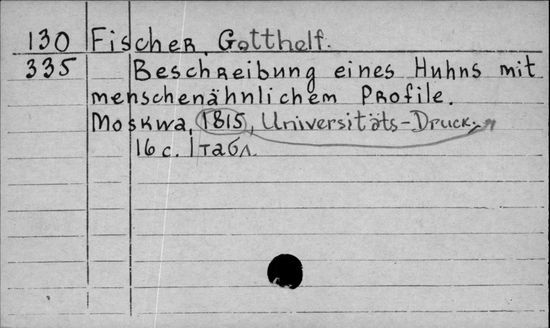 130 Fischer, Gotthelf.
335 Beschreibung eines Huhns mit
menschenähnlichem Profile.
Moskwa, 1815, Universitäts-Druck.
16 с. 1 табл.